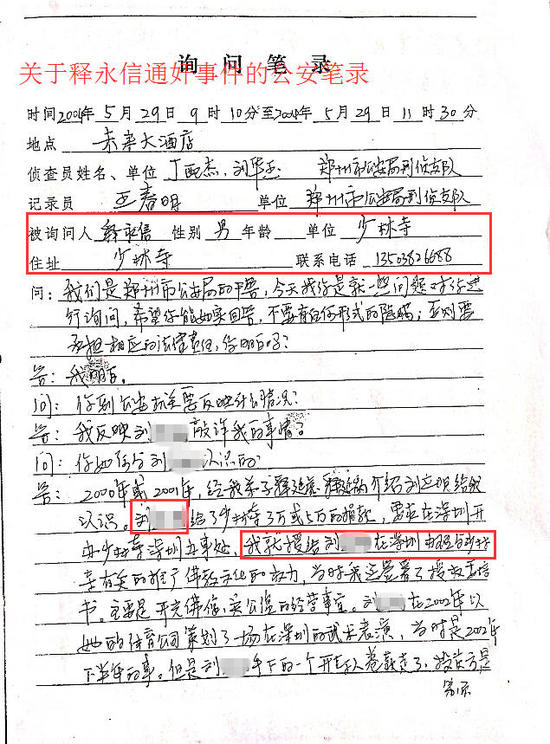 询问笔录
关于释永信通奸事件的公安笔录
时间2004年5月29日9时10分至2004年5月29日11时30分
地点 未来大酒店
侦查员姓名、单位 丁 杰、刘华 郑州市公安局刑侦支队
记录员 王春明 单位 郑州市公安局刑侦支队
被询问人 释永信 性别 男 年龄 单位 少林寺
住址 少林寺 联系电话
问：我们是郑州市公安局的干警，今天我们是就一些问题对你进
行询问，希望你能如实回答，不要有任何形式的隐瞒；否则要
承担相应的法律责任，你明白吗？
答：我明白。
问：你到公安机关要反映什么情况？
答：我反映刘 敲诈我的事情？
问：你如何与刘 认识的
答：2000年或2001年，经我弟子释延 介绍刘 给我
认识。刘 给了少林寺3万或5万的捐款，要求在深圳开
办少林寺深圳办事处，我就授给刘 在深圳 与少林
寺有关的推广佛教文化的权力，当时我还签署了授权委托
书。主要是开光佛像，卖公 的经营事宜。刘 在2002年以
她的体育公司策划了一场在深圳的武术表演，当时是2002年
下半年的事。但是刘 手下的一个 款走了，投资方是